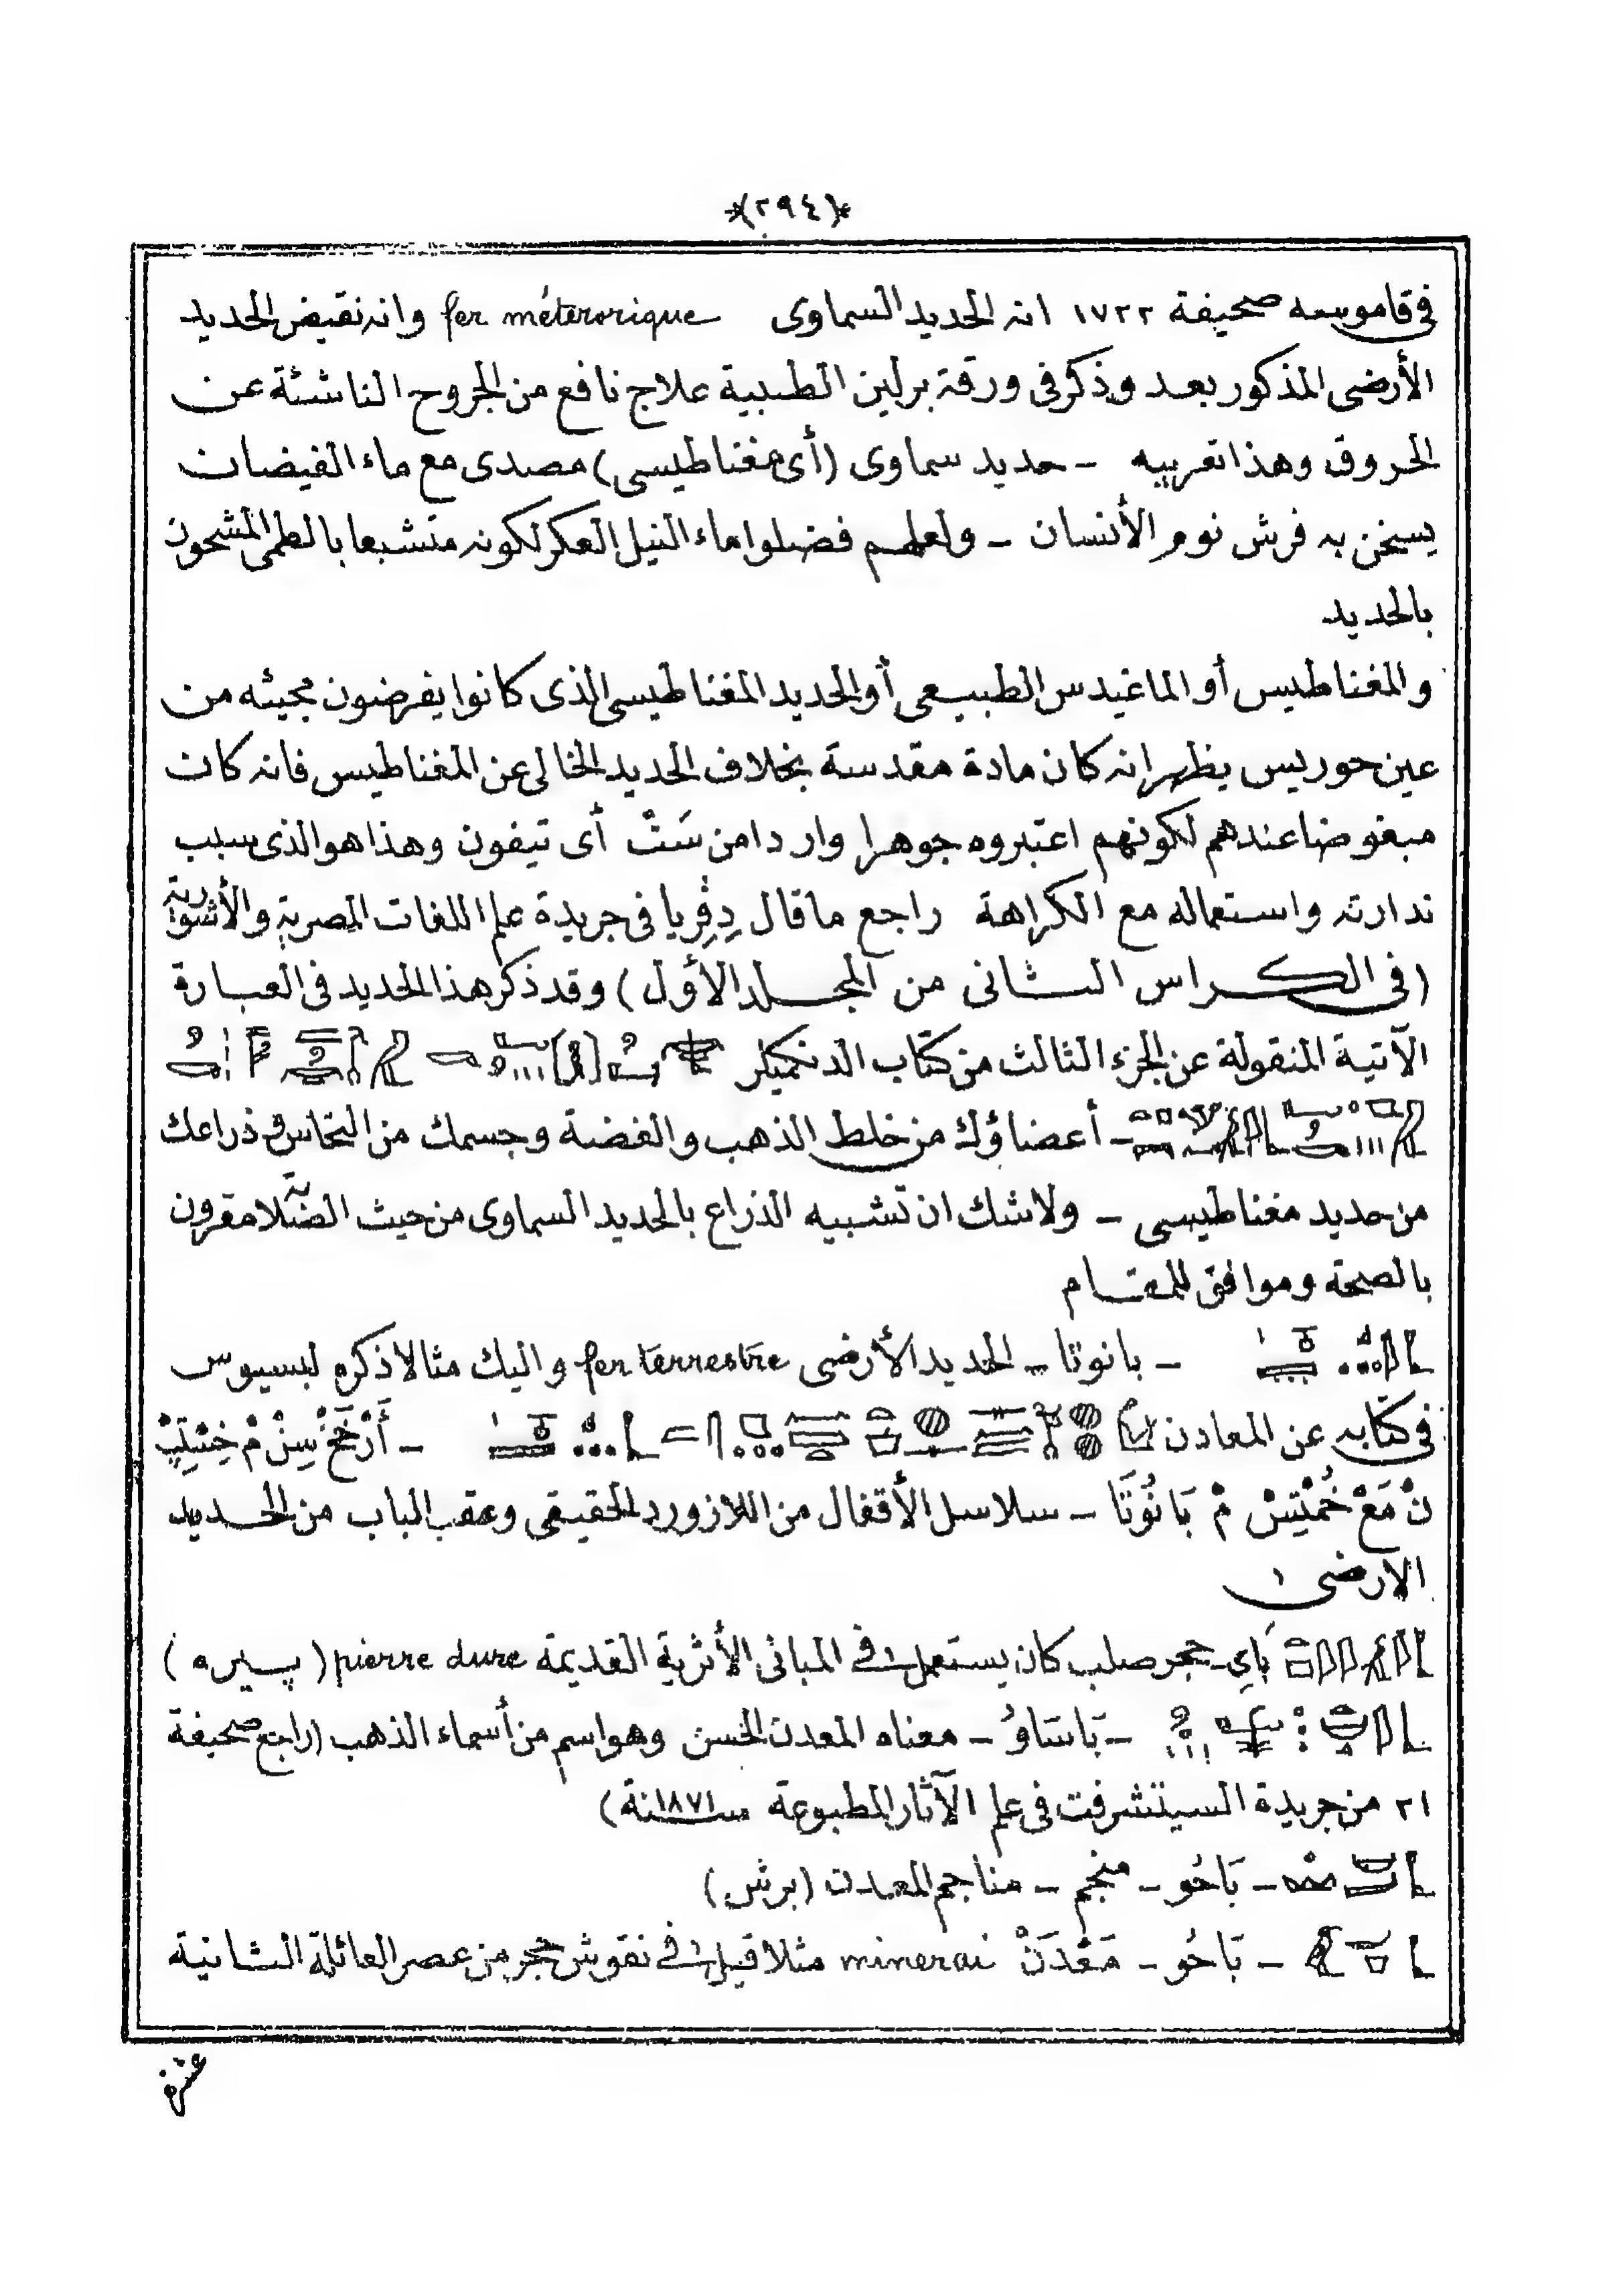 *(٢٩٤)*
فى قاموسه صحيفة ١٧٢٢ انه الحديد السماوى fer méterorique وانه نقيض الحديد
الأرضى المذكور بعد وذكر فى ورقة برلين الطبية علاج نافع من الجروح الناشئة عن
الحروق وهذا تعريبه - حديد سماوى (أى مغناطيسى) مصدى مع ماء الفيضات
يسخن به فرش نوم الأنسان - ولعلهم فضلوا ماء النيل العكر لكونه متشبعا بالطمى المشحون
بالحديد
والمغناطيس أو الماغيدس الطبيعى أو الحديد المغناطيسى الذى كانوا يفرضون مجيئه من
عين حوريس يظهر انه كان مادة مقدسة بخلاف الحديد الخالى عن المغناطيس فانه كان
مبغوضا عندهم لكونهم اعتبروه جوهرا واردا من سَتْ أى تيفون وهذا هو الذى سبب
ندارته واستعماله مع الكراهة راجع ما قال دِڤِريا فى جريدة علم اللغات المصرية والأشورية
(فى الكراس الثانى من المجلد الأول) وقد ذكر هذا الحديد فى العبارة
الآتية المنقولة عن الجزء الثالث من كتاب الدنكميلر
- أعضاؤك من خلط الذهب والفضة وجسمك من النحاس وذراعك
من حديد مغناطيسى - ولا شك ان تشبيه الذراع بالحديد السماوى من حيث الصلابة مقرون
بالصحة وموافق للمقام
- بانوتا - الحديد الأرضى fer terrestre واليك مثالا ذكره لبسيوس
فى كتابه عن المعادن -
نْ مَعْ خُمْتِسْ مْ بَانُوتَا - سلاسل الأقفال من اللازورد الحقيقى وعقب الباب من الحديد
الارضى
بَاىِ - حجر صلب كان يستعمل فى المبانى الأثرية القديمة pierre dure (پيره)
- بَاسَاوُ - معناه المعدن الحسن وهو اسم من أسماء الذهب (راجع صحيفة
٢١ من جريدة السيتشرفت فى علم الآثار المطبوعة سنة ١٨٧١)
- بَاحُو - منجم - مناجم المعدن (برش)
- بَاحُو - مَعْدَنْ minerai مثلا قيل فى نقوش حجر من عصر العائلة الثانية
عشرة